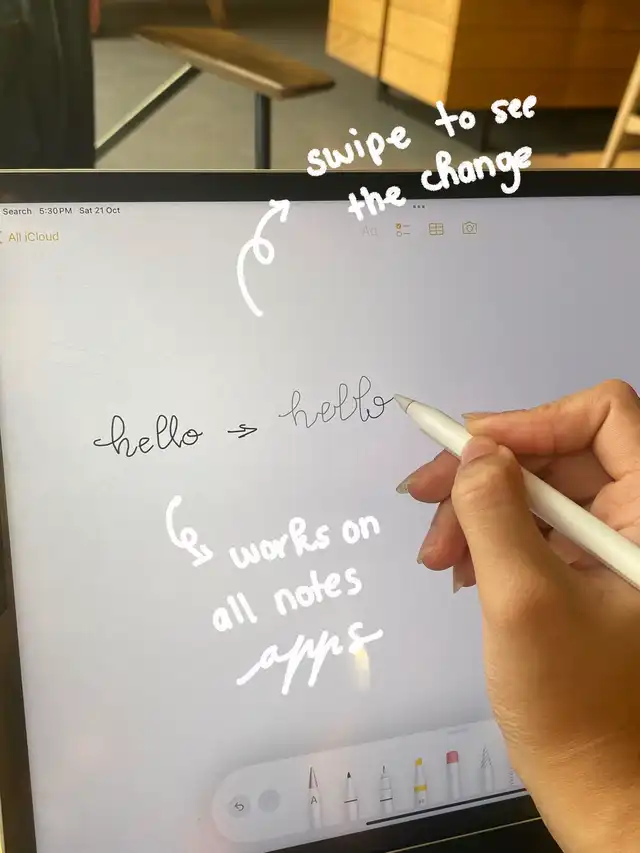 swipe to see
the change
Search 5:30 PM Sat 21 Oct
All iCloud
Aa
hello → hello
works on
all notes
apps
A